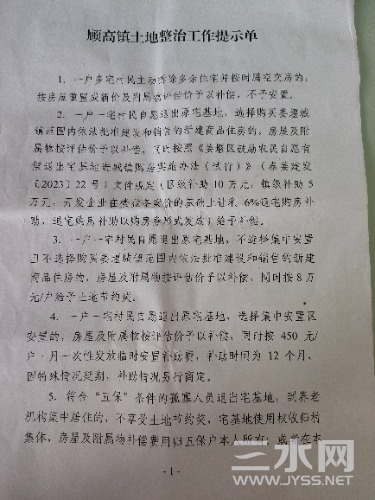 顾高镇土地整治工作提示单
1. 一户多宅村民主动拆除多余住宅并按时腾空交房的,
按房屋重置成新价及附属物评估价予以补偿,不予安置。
2. 一户一宅村民自愿退出原宅基地,选择购买姜堰城
镇范围内依法批准建设和销售的新建商品住房的,房屋及附
属物按评估价予以补偿,同时按照《姜堰区鼓励农民自愿有
偿退出宅基地进城镇购房实施办法(试行)》(泰姜建发
〔2023〕22号)文件规定(区级补助10万元,镇级补助5
万元,开发企业在备案价的基础上让利6%
助,退宅购房补助以购房券形式发放)给予补偿。
3. 一户一宅村民自愿退出原宅基地,不选择集中安置
且不选择购买姜堰城镇范围内依法批准建设和销售的新建
商品住房的,房屋及附属物按评估价予以补偿,同时按8万
元/户给予土地节约奖。
4. 一户一宅村民自愿退出原宅基地,选择集中安置区
安置的,房屋及附属物按评估价予以补偿,同时按450元/
户·月一次性发放临时安置补助费,补助时间为12个月,
因特殊情况延期,补助情况另行商定。
5. 符合“五保”条件的孤寡人员退出宅基地,到养老
机构集中居住的,不享受土地节约奖,宅基地使用权收归村
集体,房屋及附属物补偿费用归五保户本人所有;或者在本
- 1 -
三水网
www.JYSS.NET